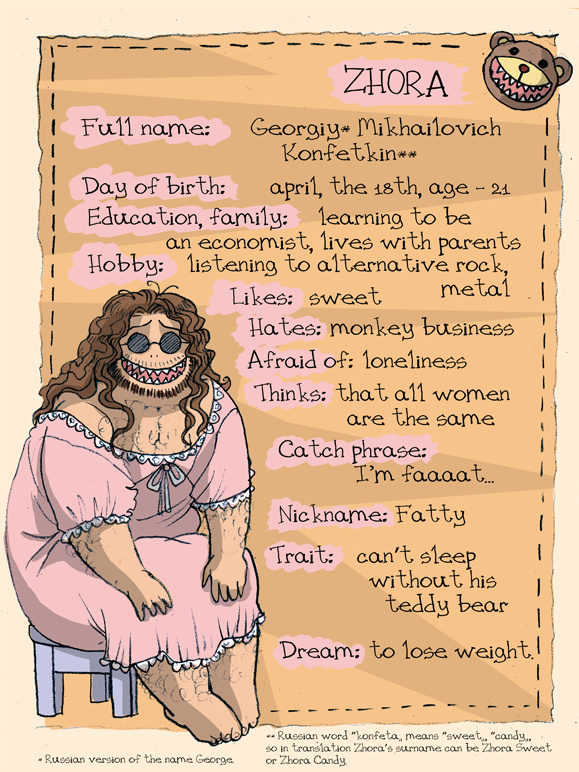 ZHORA
Full name: Georgiy* Mikhailovich
Konfetkin**
Day of birth: april, the 18th, age - 21
Education, family: learning to be
an economist, lives with parents
Hobby: listening to alternative rock,
metal
Likes: sweet
Hates: monkey business
Afraid of: loneliness
Thinks: that all women
are the same
Catch phrase:
I'm faaaat...
Nickname: Fatty
Trait: can't sleep
without his
teddy bear
Dream: to lose weight.
* Russian version of the name George.
** Russian word "konfeta„ means "sweet„, "candy„,
so in translation Zhora's surname can be Zhora Sweet
or Zhora Candy.